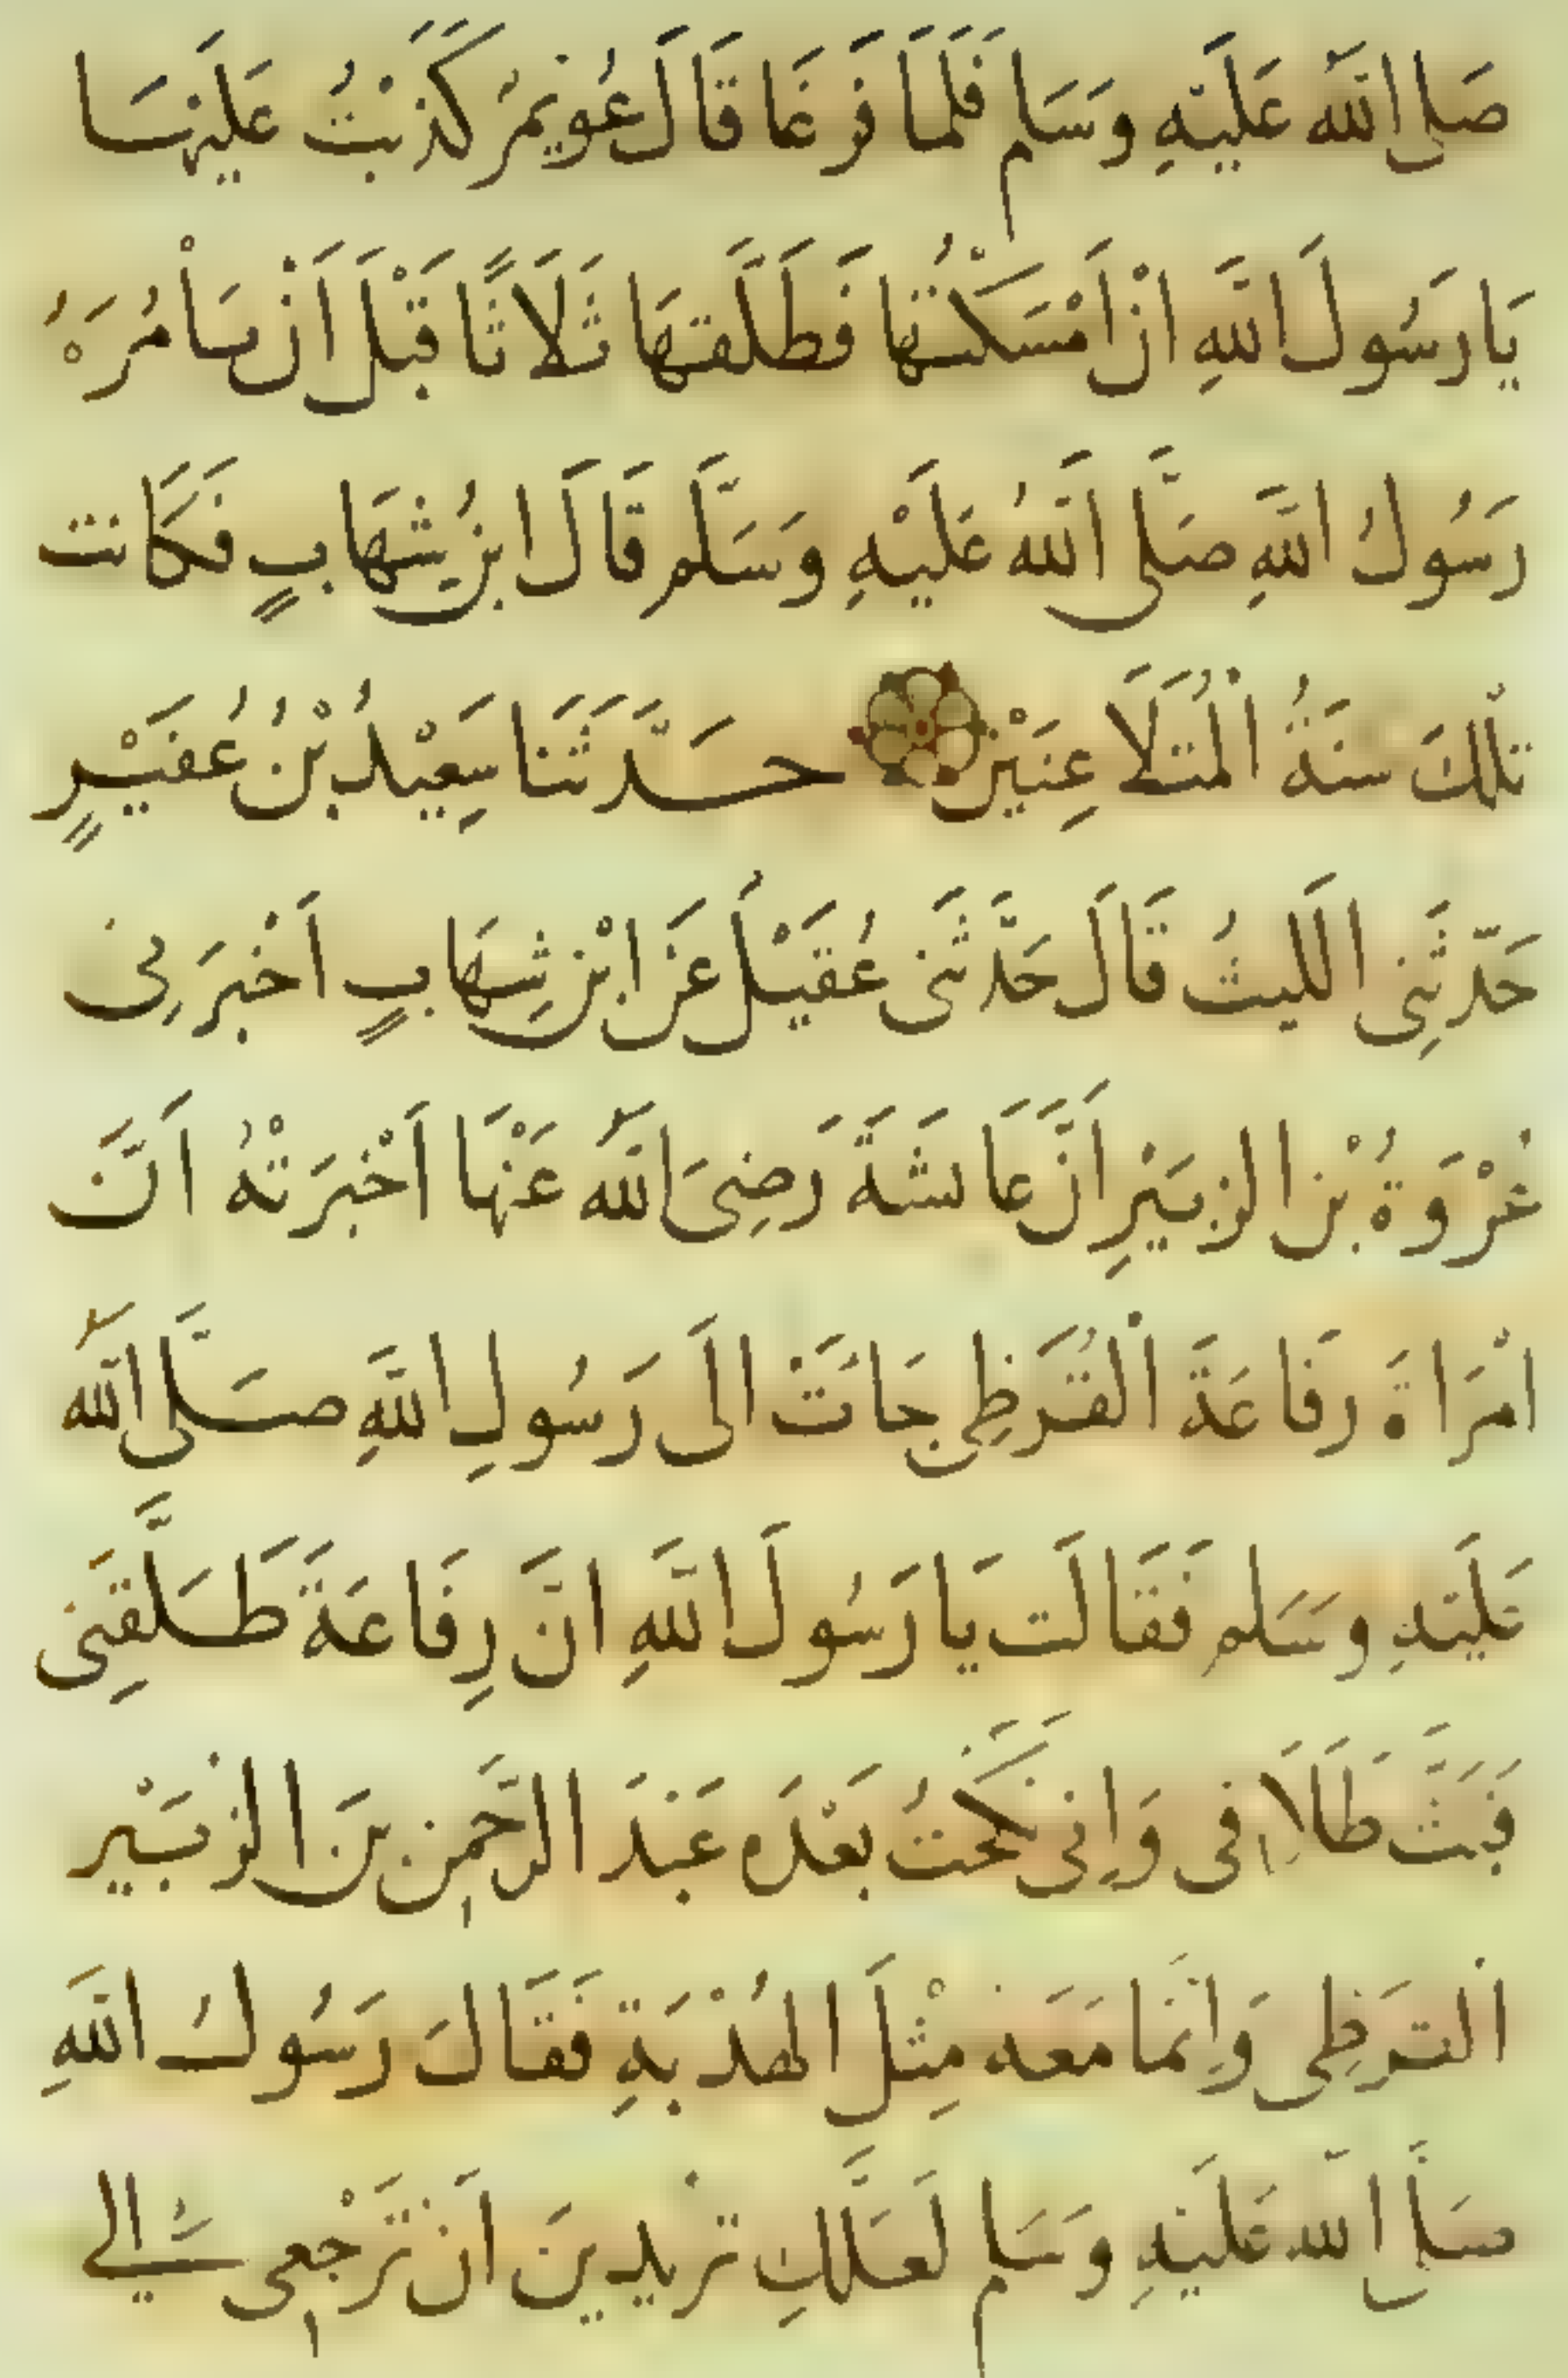 صَلى اللَّه عَلَيْهِ وَسَلم فَلَمَّا فَرَغَا قَالَ عُوَيْمِرُ كَذَبْتُ عَلَيْهَا
يَا رَسُولَ اللَّهِ انْ اَمْسَكْتُهَا فَطَلَّقَهَا ثَلَاثًا قَبْلَ اَنْ يَاْمُرَهُ
رَسُولُ اللَّهِ صَلَّى اللَّهُ عَلَيْهِ وَسَلَّم قَالَ ابْنُ شِهَابٍ فَكَانت
تلْكَ سنَةُ الْمُتَلَاعِنَيْنِ حَدَّثَنَا سَعِيْدُ بْنُ عُفَيْرٍ
حَدّثَنِى اللَّيثُ قَالَ حَدَّثَنَى عُقَيْلُ عَنَ ابْن شِهَابٍ اَخْبَرَنِى
عُرْوَةُ بْن الزبَيْرِ اَنَّ عَائشَةَ رَضِىَ اللَّه عَنْهَا اَخْبَرَتْهُ اَنَّ
امْرَاةَ رفَاعَةَ الْقُرَظِى جَاتَ الَى رَسُولِ اللَّهِ صَلَّى اللَّه
عَلَيْهِ وسَلم فَقَالَت يَا رَسُولَ اللَّهِ انَّ رِفَاعَةَ طَلَّقَنِى
فَبَتَّ طَلَاقى وَاِنى نَكَحْتُ بَعْدَه عَبْدَ الرَّحْمن بنَ الزبَيْر
الْقرَظِى وَاِنمَا مَعَه مِثْلَ الهُدْبَةِ فَقَالَ رَسُولُ اللَّهِ
صَلَّى اللَّه عَلَيْهِ وَسَلم لَعَلَّكِ تريدينَ اَن تَرْجعى الى